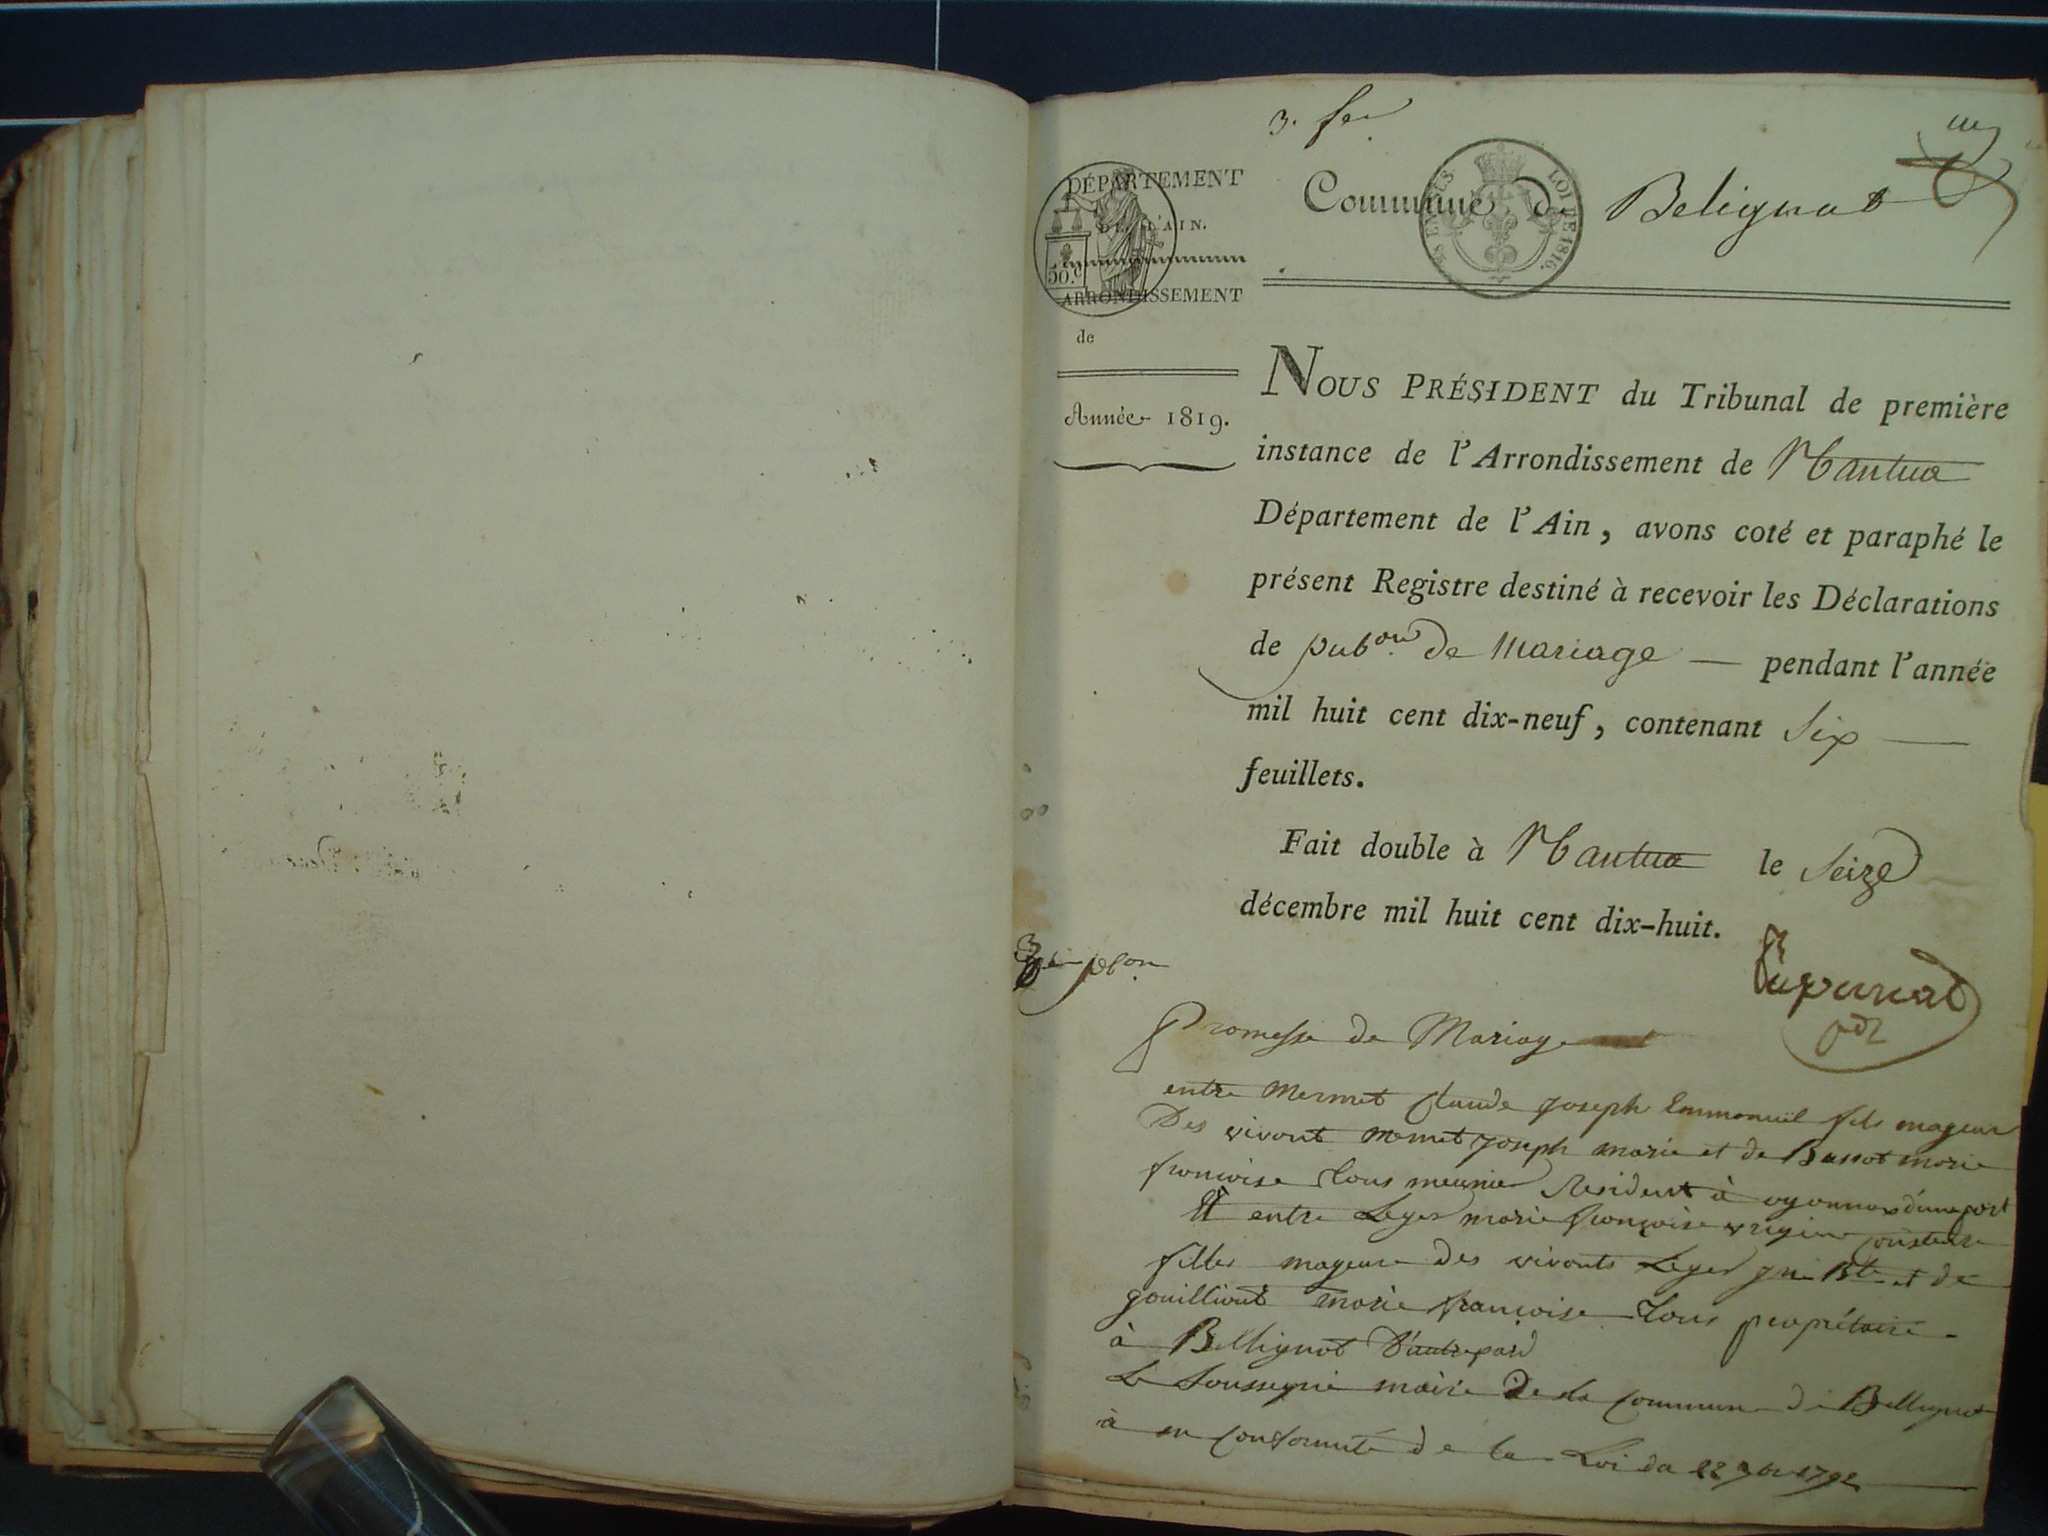 3. f
DÉPARTEMENT
DE L'AIN.
50.c
ARRONDISSEMENT
de
Année 1819.
Commune de Belignat
LOI DE 1816.
NOUS PRÉSIDENT du Tribunal de première
instance de l'Arrondissement de Nantua
Département de l'Ain, avons coté et paraphé le
présent Registre destiné à recevoir les Déclarations
de pub.on de Mariage — pendant l'année
mil huit cent dix-neuf, contenant Six —
feuillets.
Fait double à Nantua le Seize
décembre mil huit cent dix-huit.
Promesse de Mariage
entre Mermet Claude Joseph Emmanuel fils mageur
Des vivant Mermet Joseph marie et de Bassot marie
françoise tous meunier Resident à oyonnax d'une part
Et entre Leger marie françoise
filles mageure des vivants Leger Bte et de
gouilliout marie françoise tous propriétaire
à Bellignat D'autre pard
Le Soussigné maire De la Commune de Bellignat
à en Conformité de la Loi du 22 9br 1792